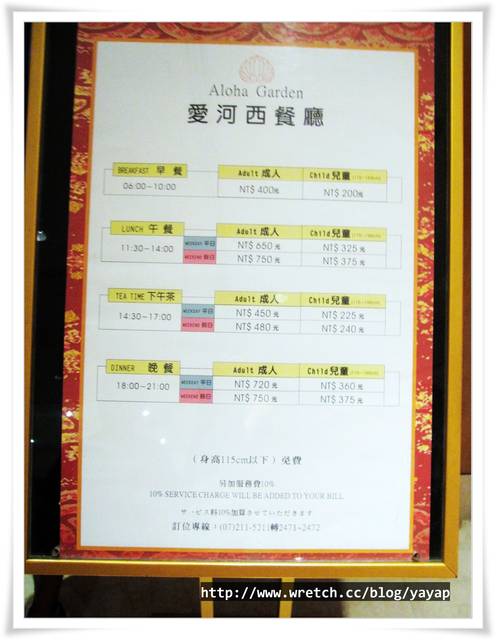 Aloha Garden
愛河西餐廳
BREAKFAST 早餐 Adult 成人 Child 兒童
06:00~10:00 NT$ 400元 NT$ 200元
LUNCH 午餐 Adult 成人 Child 兒童
11:30~14:00 WEEKDAY 平日 NT$ 650元 NT$ 325元
WEEKEND 假日 NT$ 750元 NT$ 375元
TEA TIME 下午茶 Adult 成人 Child 兒童
14:30~17:00 WEEKDAY 平日 NT$ 450元 NT$ 225元
WEEKEND 假日 NT$ 480元 NT$ 240元
DINNER 晚餐 Adult 成人 Child 兒童
18:00~21:00 WEEKDAY 平日 NT$ 720元 NT$ 360元
WEEKEND 假日 NT$ 750元 NT$ 375元
(身高115cm以下)免費
另加服務費10%
10% SERVICE CHARGE WILL BE ADDED TO YOUR BILL
サービス料10%加算させていただきます
訂位專線:(07)211-5211轉2471~2472
http://www.wretch.cc/blog/yayap